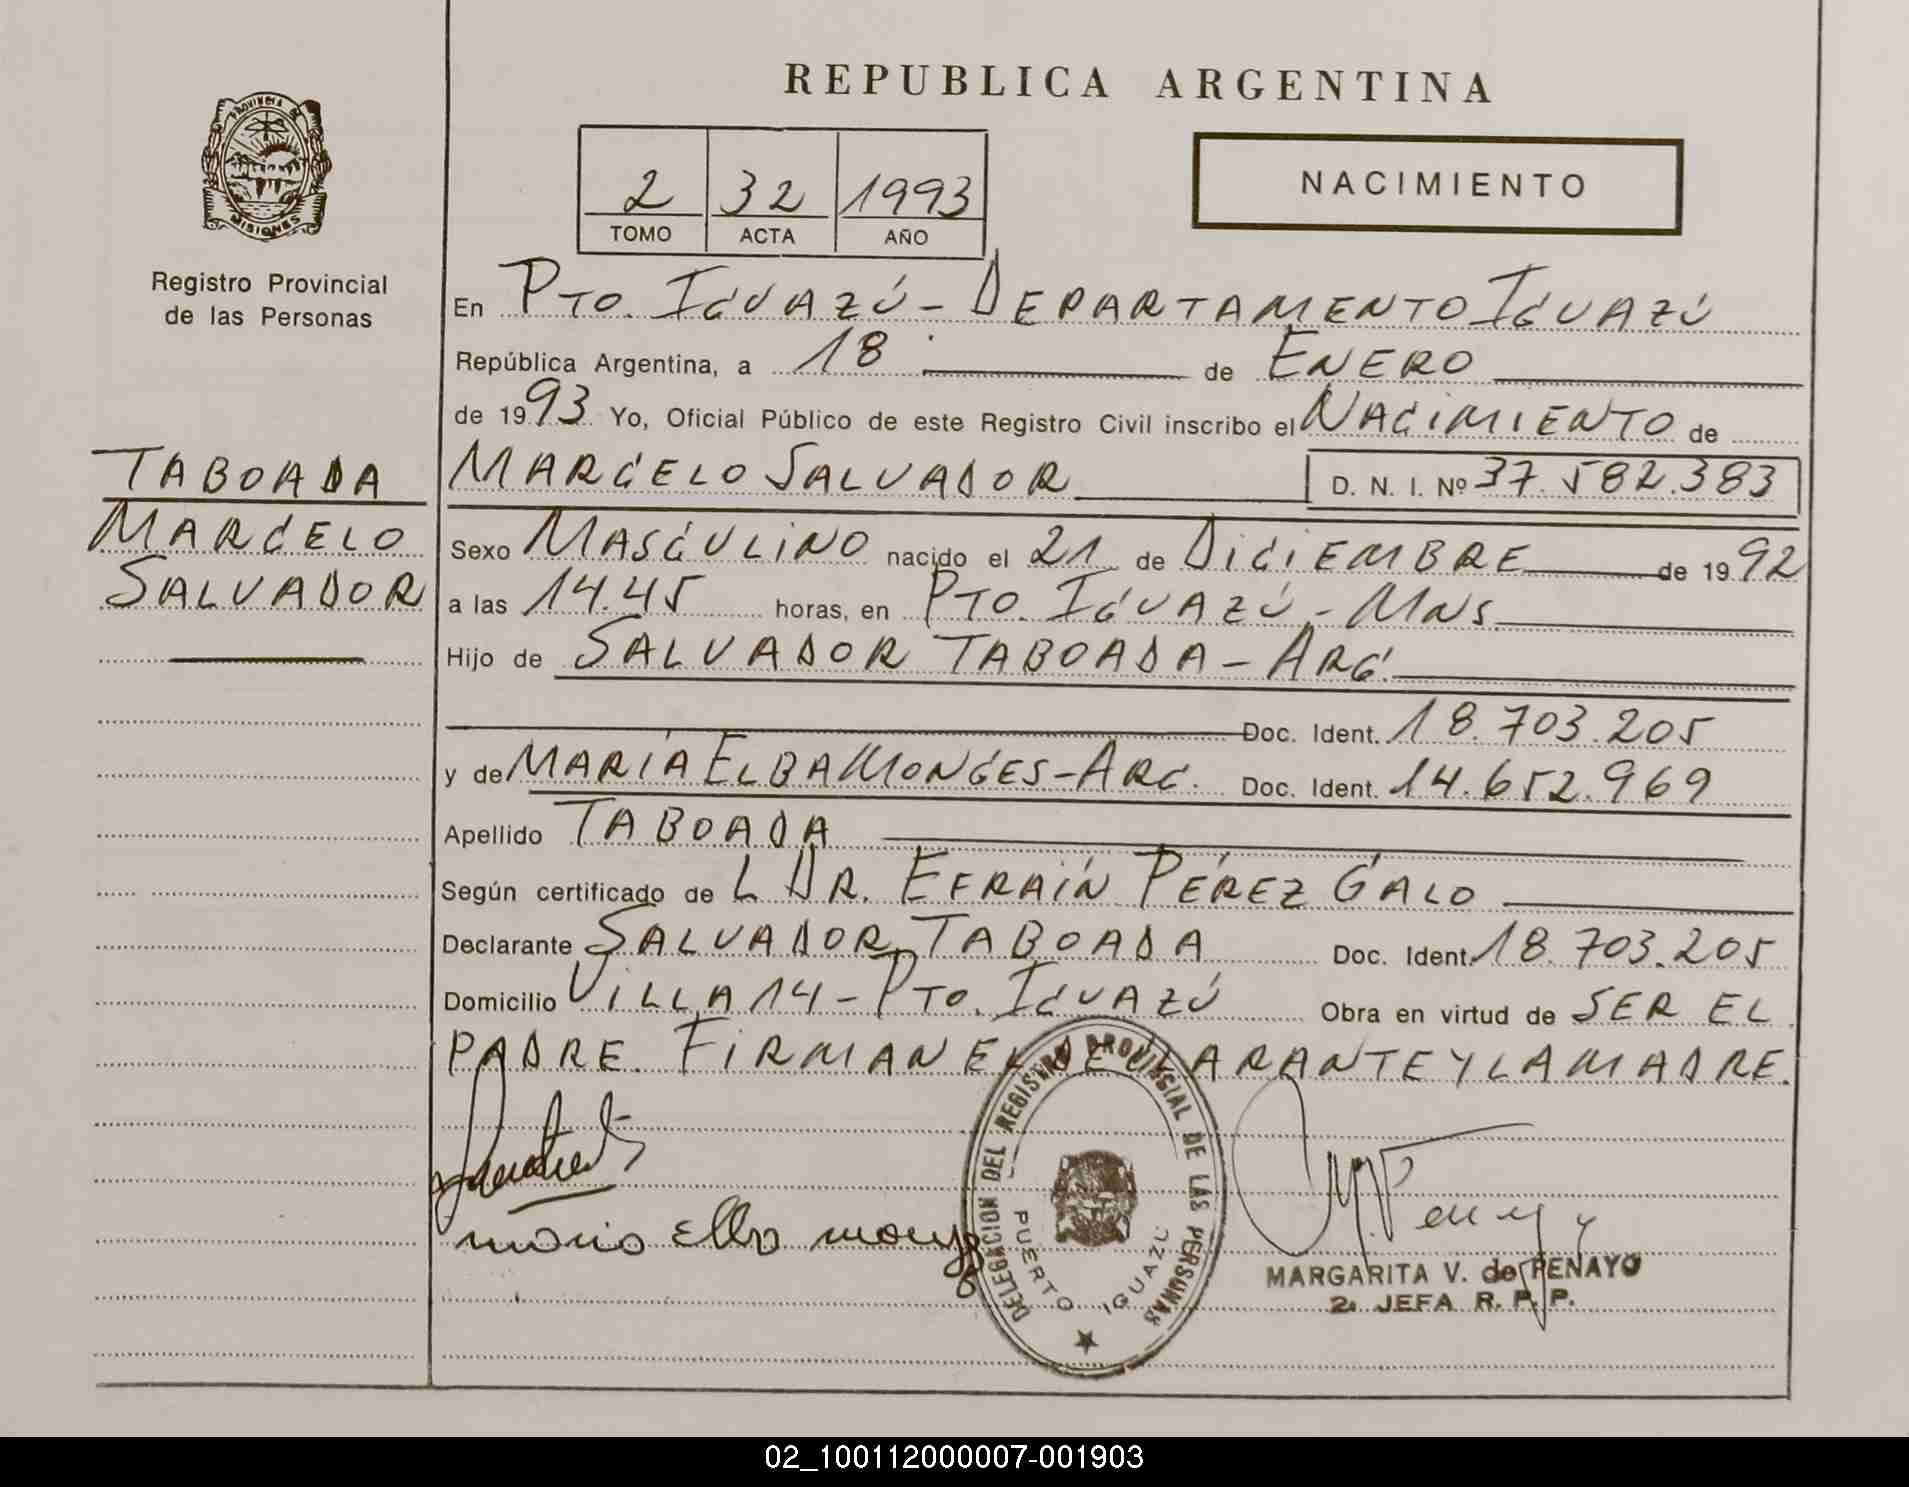 REPUBLICA ARGENTINA
PROVINCIA DE
MISIONES
Registro Provincial
de las Personas
2 32 1993
TOMO ACTA AÑO
NACIMIENTO
En PTO. IGUAZÚ - DEPARTAMENTO IGUAZÚ
República Argentina, a 18 de ENERO
de 1993 Yo, Oficial Público de este Registro Civil inscribo el NACIMIENTO de
MARCELO SALVADOR D. N. I. Nº 37.582.383
TABOADA
MARCELO
SALVADOR
Sexo MASCULINO nacido el 21 de DICIEMBRE de 1992
a las 14.45 horas, en PTO. IGUAZÚ - MNS.
Hijo de SALVADOR TABOADA - ARG.
Doc. Ident. 18.703.205
y de MARÍA ELBA MONGES - ARG. Doc. Ident. 14.652.969
Apellido TABOADA
Según certificado de L DR. EFRAÍN PÉREZ GALO
Declarante SALVADOR TABOADA Doc. Ident. 18.703.205
Domicilio VILLA 14 - PTO. IGUAZÚ Obra en virtud de SER EL
PADRE. FIRMAN EL DECLARANTE Y LA MADRE.
maria elba monges
DELEGACION DEL REGISTRO PROVINCIAL DE LAS PERSONAS
PUERTO IGUAZU
MARGARITA V. de PENAYO
2a JEFA R. P. P.
02_100112000007-001903